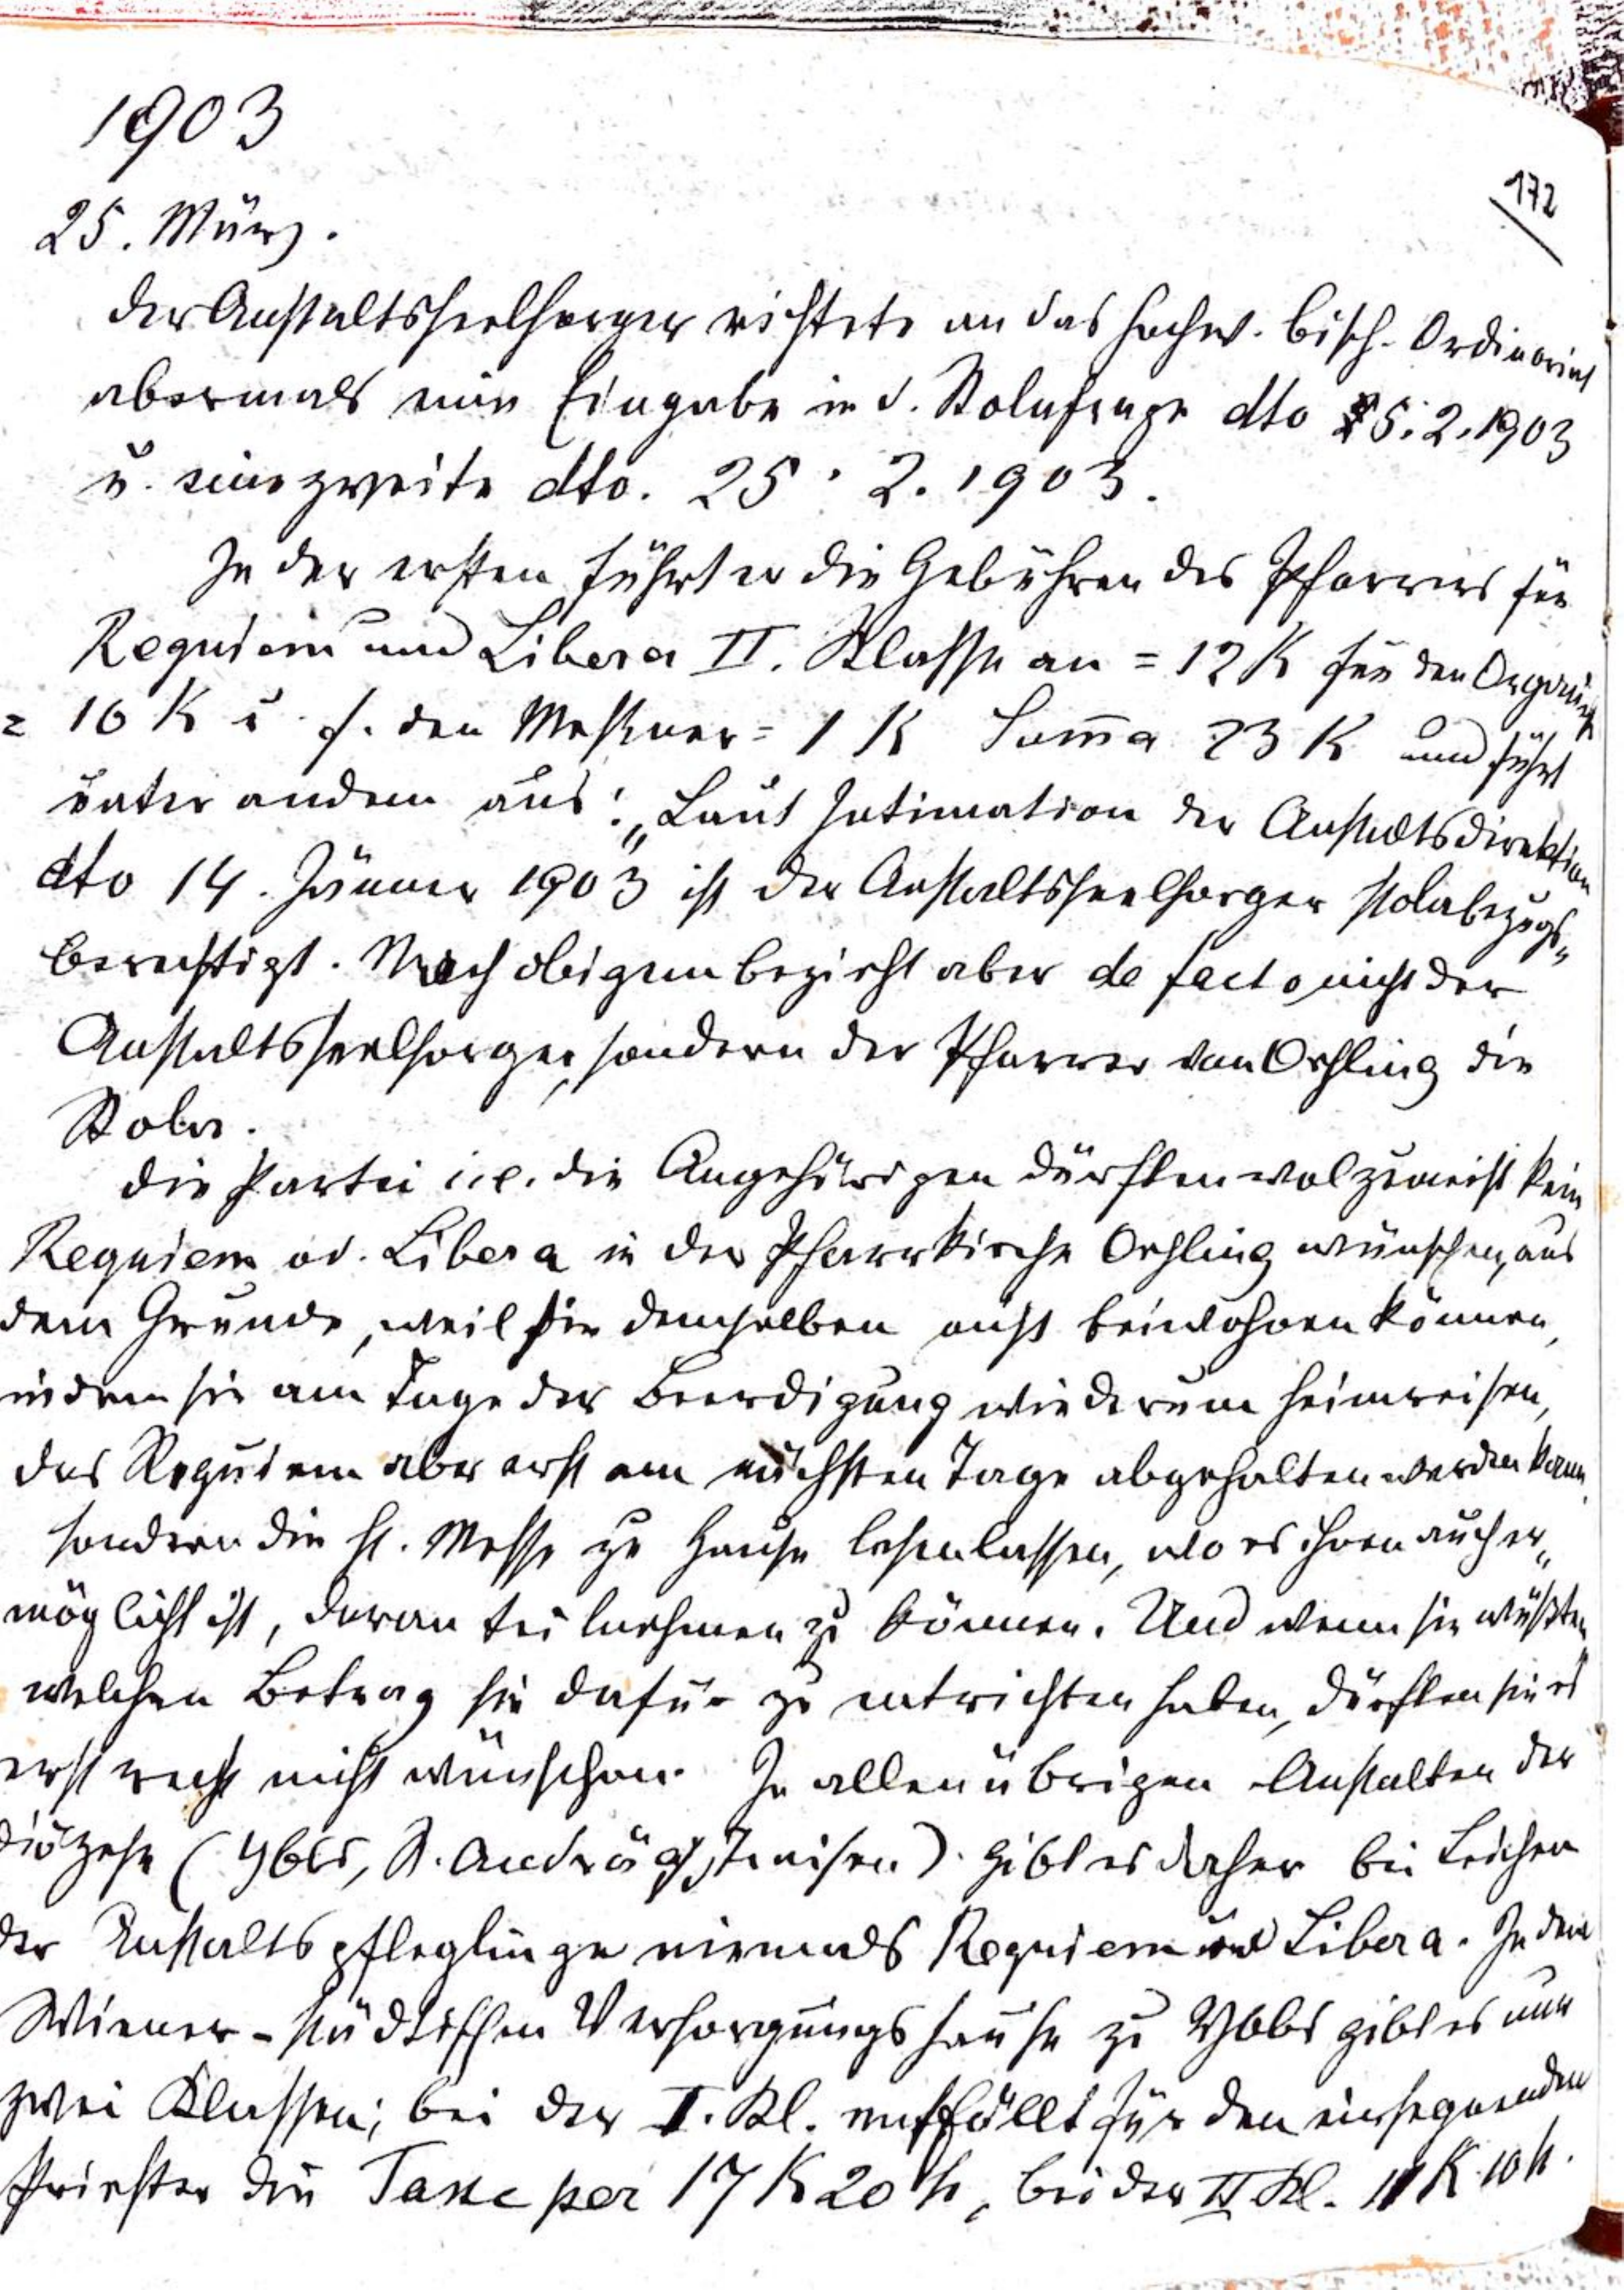 1903
172
25. März.
Der Anstaltsseelsorger richtete an das hochw. bisch. Ordinariat
abermals eine Eingabe in d. Stolafrage dto 25.2.1903
u. eine zweite dto. 25. 2. 1903.
In der ersten führt er die Gebühren des Pfarrers für
Requiem und Libera II. Klasse an = 12 K für den Organist
= 10 K u. f. den Meßner = 1 K Som̄a 23 K und führt
unter andern aus: „Laut Intimation der Anstaltsdirektion
dto 14. Jänner 1903 ist der Anstaltsseelsorger stolabezugs„
berechtigt. Nach obigem bezieht aber de facto nicht der
Anstaltsseelsorger, sondern der Pfarrer von Oehling die
Stola.
Die Partei i.e. die Angehörigen dürften wol zumeist kein
Requiem od. Libera in der Pfarrkirche Oehling wünschen, aus
dem Grunde, weil sie demselben nicht beiwohnen können,
indem sie am Tage der Beerdigung wiederum heimreisen,
das Requiem aber erst am nächsten Tage abgehalten werden kann,
sondern die hl. Messe zu Hause lesen lassen, wo es ihnen auch er„
möglicht ist, daran teilnehmen zu können. Und wenn sie wüßten
welchen Betrag sie dafür zu entrichten haben, dürften sie es
erst recht nicht wünschen. In allen übrigen Anstalten der
Diözese (Ybbs, St. Andrä a/, Traisen). gibt es daher bei Leichen
der Anstaltspfleglinge niemals Requiem und Libera. In dem
Wiener-städtischen Versorgungshause zu Ybbs gibt es nur
zwei Klassen; bei der I. Kl. entfällt für den einsegnenden
Priester die Taxe per 17 K 20 h, bei der II Kl. 11 K 10 h.